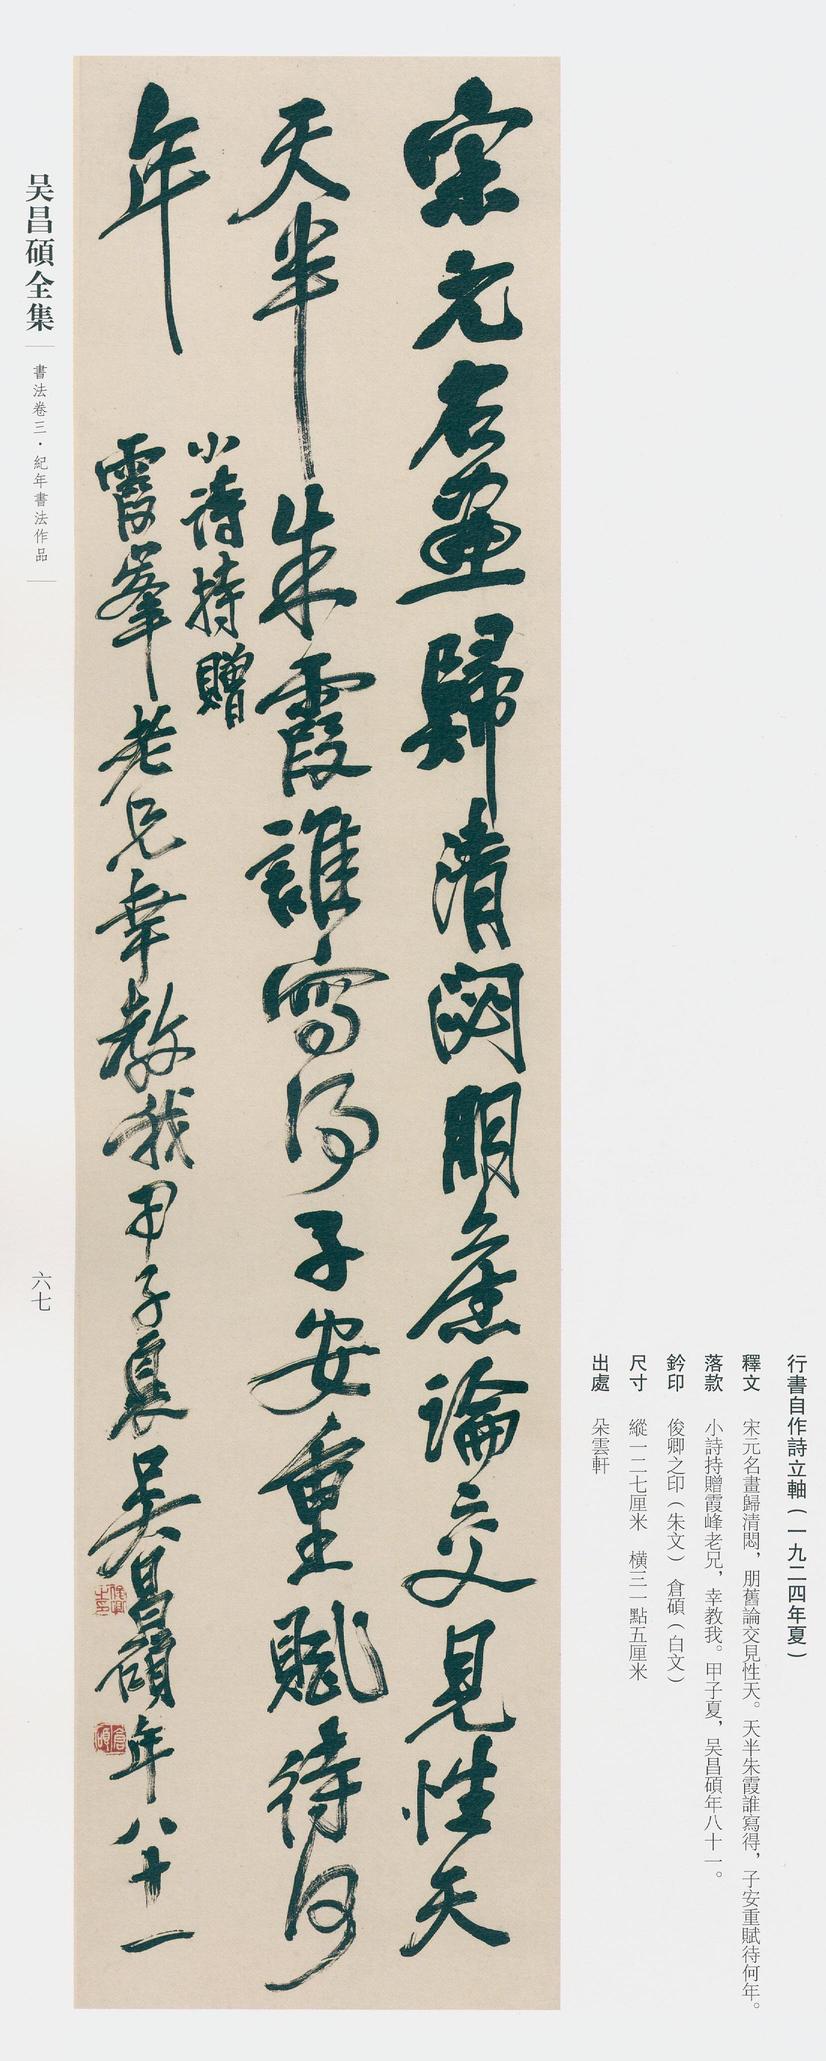 宋元名畫歸清閟朋舊論交見性天
天半朱霞誰寫得子安重賦待何
年
小詩持贈
霞峯老兄幸教我甲子夏吳昌碩年八十一
行書自作詩立軸（一九二四年夏）
釋文　宋元名畫歸清閟，朋舊論交見性天。天半朱霞誰寫得，子安重賦待何年。
落款　小詩持贈霞峰老兄，幸教我。甲子夏，吴昌碩年八十一。
鈐印　俊卿之印（朱文）　倉碩（白文）
尺寸　縱一二七厘米　横三一點五厘米
出處　朵雲軒
吴昌碩全集
書法卷三·紀年書法作品
六七
倉碩